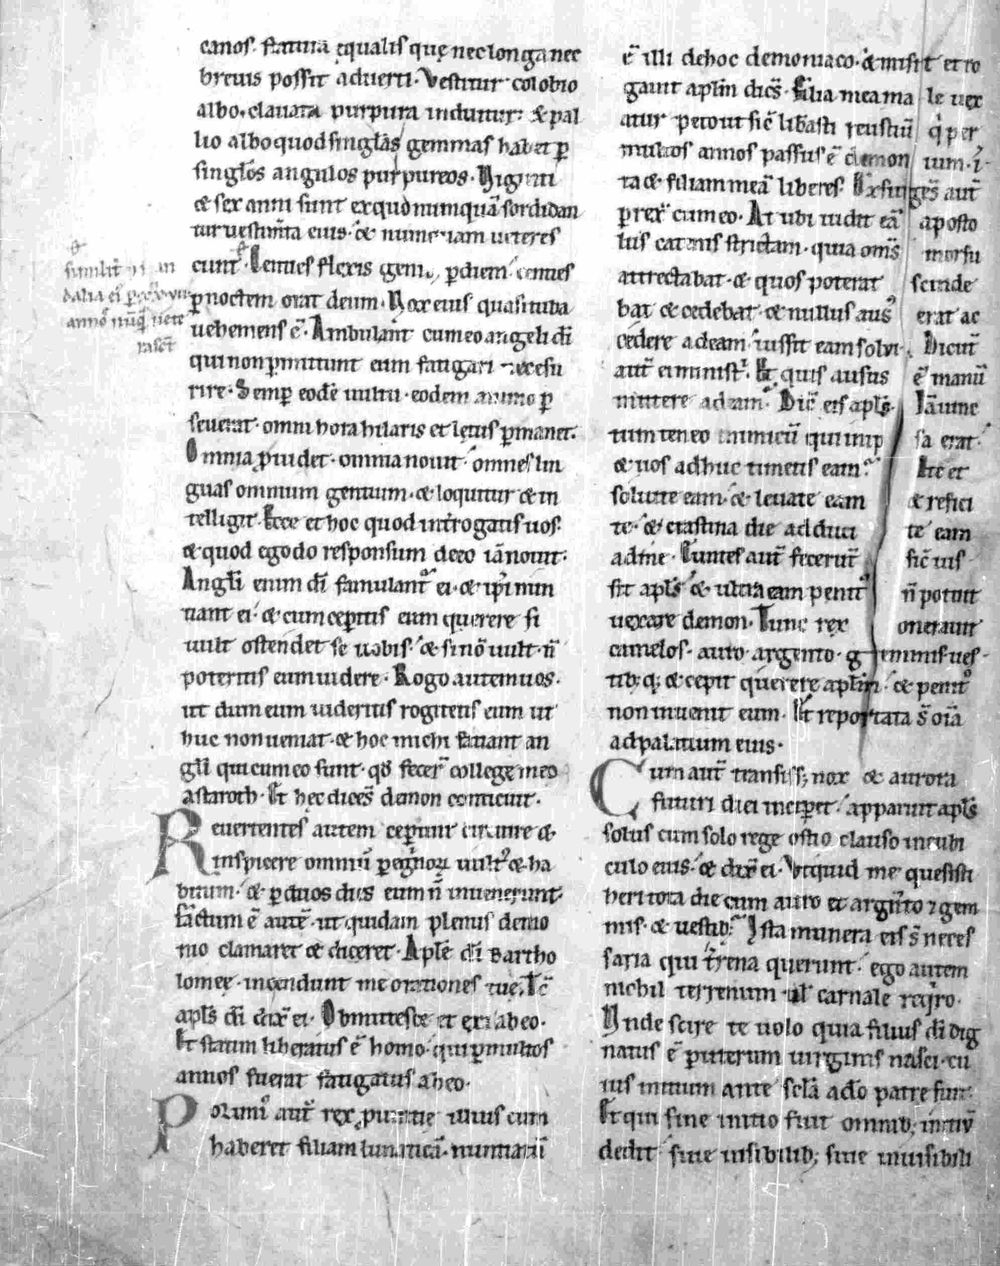 canos. statura ęqualis quę nec longa nec
brevis possit adverti. Vestitur colobio
albo. clavata purpura induitur: & pal
lio albo quod singlas gemmas habet p
singlos angulos purpureos. Viginti
& sex anni sunt ex quo numquā sordidan
tur vestimta eius. & numquam veteres
cunt. Centies flexis genu, p diem. centies
p noctem orat deum. Vox eius quasi tuba
vehemens ē. Ambulant cum eo angeli di
qui non pmittunt eum fatigari nec esu
rire. Semp eodē vultu. eodem animo p
severat. omni hora hilaris et letus pmanet.
Omnia pvidet. omnia novit. omnes lin
guas omnium gentium. & loquitur & in
telligit. Ecce et hoc quod introgatis vos.
& quod ego do responsum deeo iā novit.
Angli enim di famulant ei. & ipi nun
tiant ei. & cum ceptis eum querere si
vult ostendet se vobis. & si nō vult. n̄
poteritis eum videre. Rogo autem vos.
ut dum eum videritis rogitetis eum ut
huc non veniat. & hoc michi faciant an
gli qui cum eo sunt. qd fecer college meo
astaroth. Et hec dices demon conticuit.
Revertentes autem ceperunt circuire &
inspicere omniū pegrinor vult & ha
bitum. & p duos dies eum n̄ invenerunt.
Factum ē aute. ut quidam plenus demo
nio clamaret & diceret. Aple di Bartho
lomeę. incendunt me orationes tuę. Tc
apls di dix ei. Obmutesce et exi ab eo.
Et statim liberatus ē homo. qui p multos
annos fuerat fatigatus ab eo.
Polimi aut rex pvintie illius cum
haberet filiam lunaticā. nuntiatū
similit & san
dalia ei p xxvi
annos nūq vete
rasct
ē illi de hoc demoniaco. & misit et ro
gavit aplm dics. Filia mea ma le vex
atur. peto ut sic libasti seustiū q per
multos annos passus ē demonium. i
ta & filiam meā liberes. Exsurges aut
prex cum eo. At ubi vidit eā aposto
lus catenis strictam. quia oms morsu
attrectabat. & quos poterat scinde
bat & cedebat. & nullus aus erat ac
cedere ad eam. iussit eam solvi. Dicūt
aut ei ministri. Et quis ausus ē manū
mittere ad eam. Dic eis apls. Iā vinc
tum teneo inimicū qui in ipsa erat.
& vos adhuc timetis eam? Ite et
solvite eam. & levate eam & refici
te. & crastina die adduci te eam
ad me. Euntes aut fecerūt sic ius
sit apls. & ultra eam penit n̄ potuit
vexare demon. Tunc rex oneravit
camelos. auro argento. gemmis ves
tib; q; & cepit querere aplm. & penit
non invenit eum. Et reportata s oiā
ad palatium eius.
Cum aut transiss; nox & aurora
futuri diei inciperet. apparuit apls
solus cum solo rege ostio clauso in cubi
culo eius. & dix ei. Vtquid me quesisti
heri tota die cum auro et argnto & gem
mis. & vestib;? Ista munera eis s neces
saria qui trena querunt. ego autem
nichil terrenum ul carnale reqro.
Vnde scire te volo quia filius di dig
natus ē p uterum virginis nasci. cu
ius initium ante scla a do patre fuit.
Et qui sine initio fuit omnib; initiū
dedit sive visibilib; sive invisibili